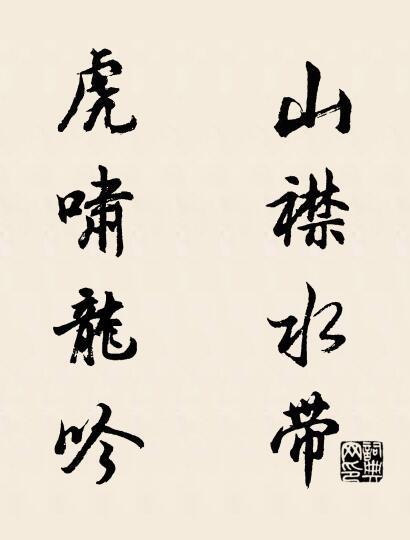 山襟水带
虎啸龍吟
詞典网印